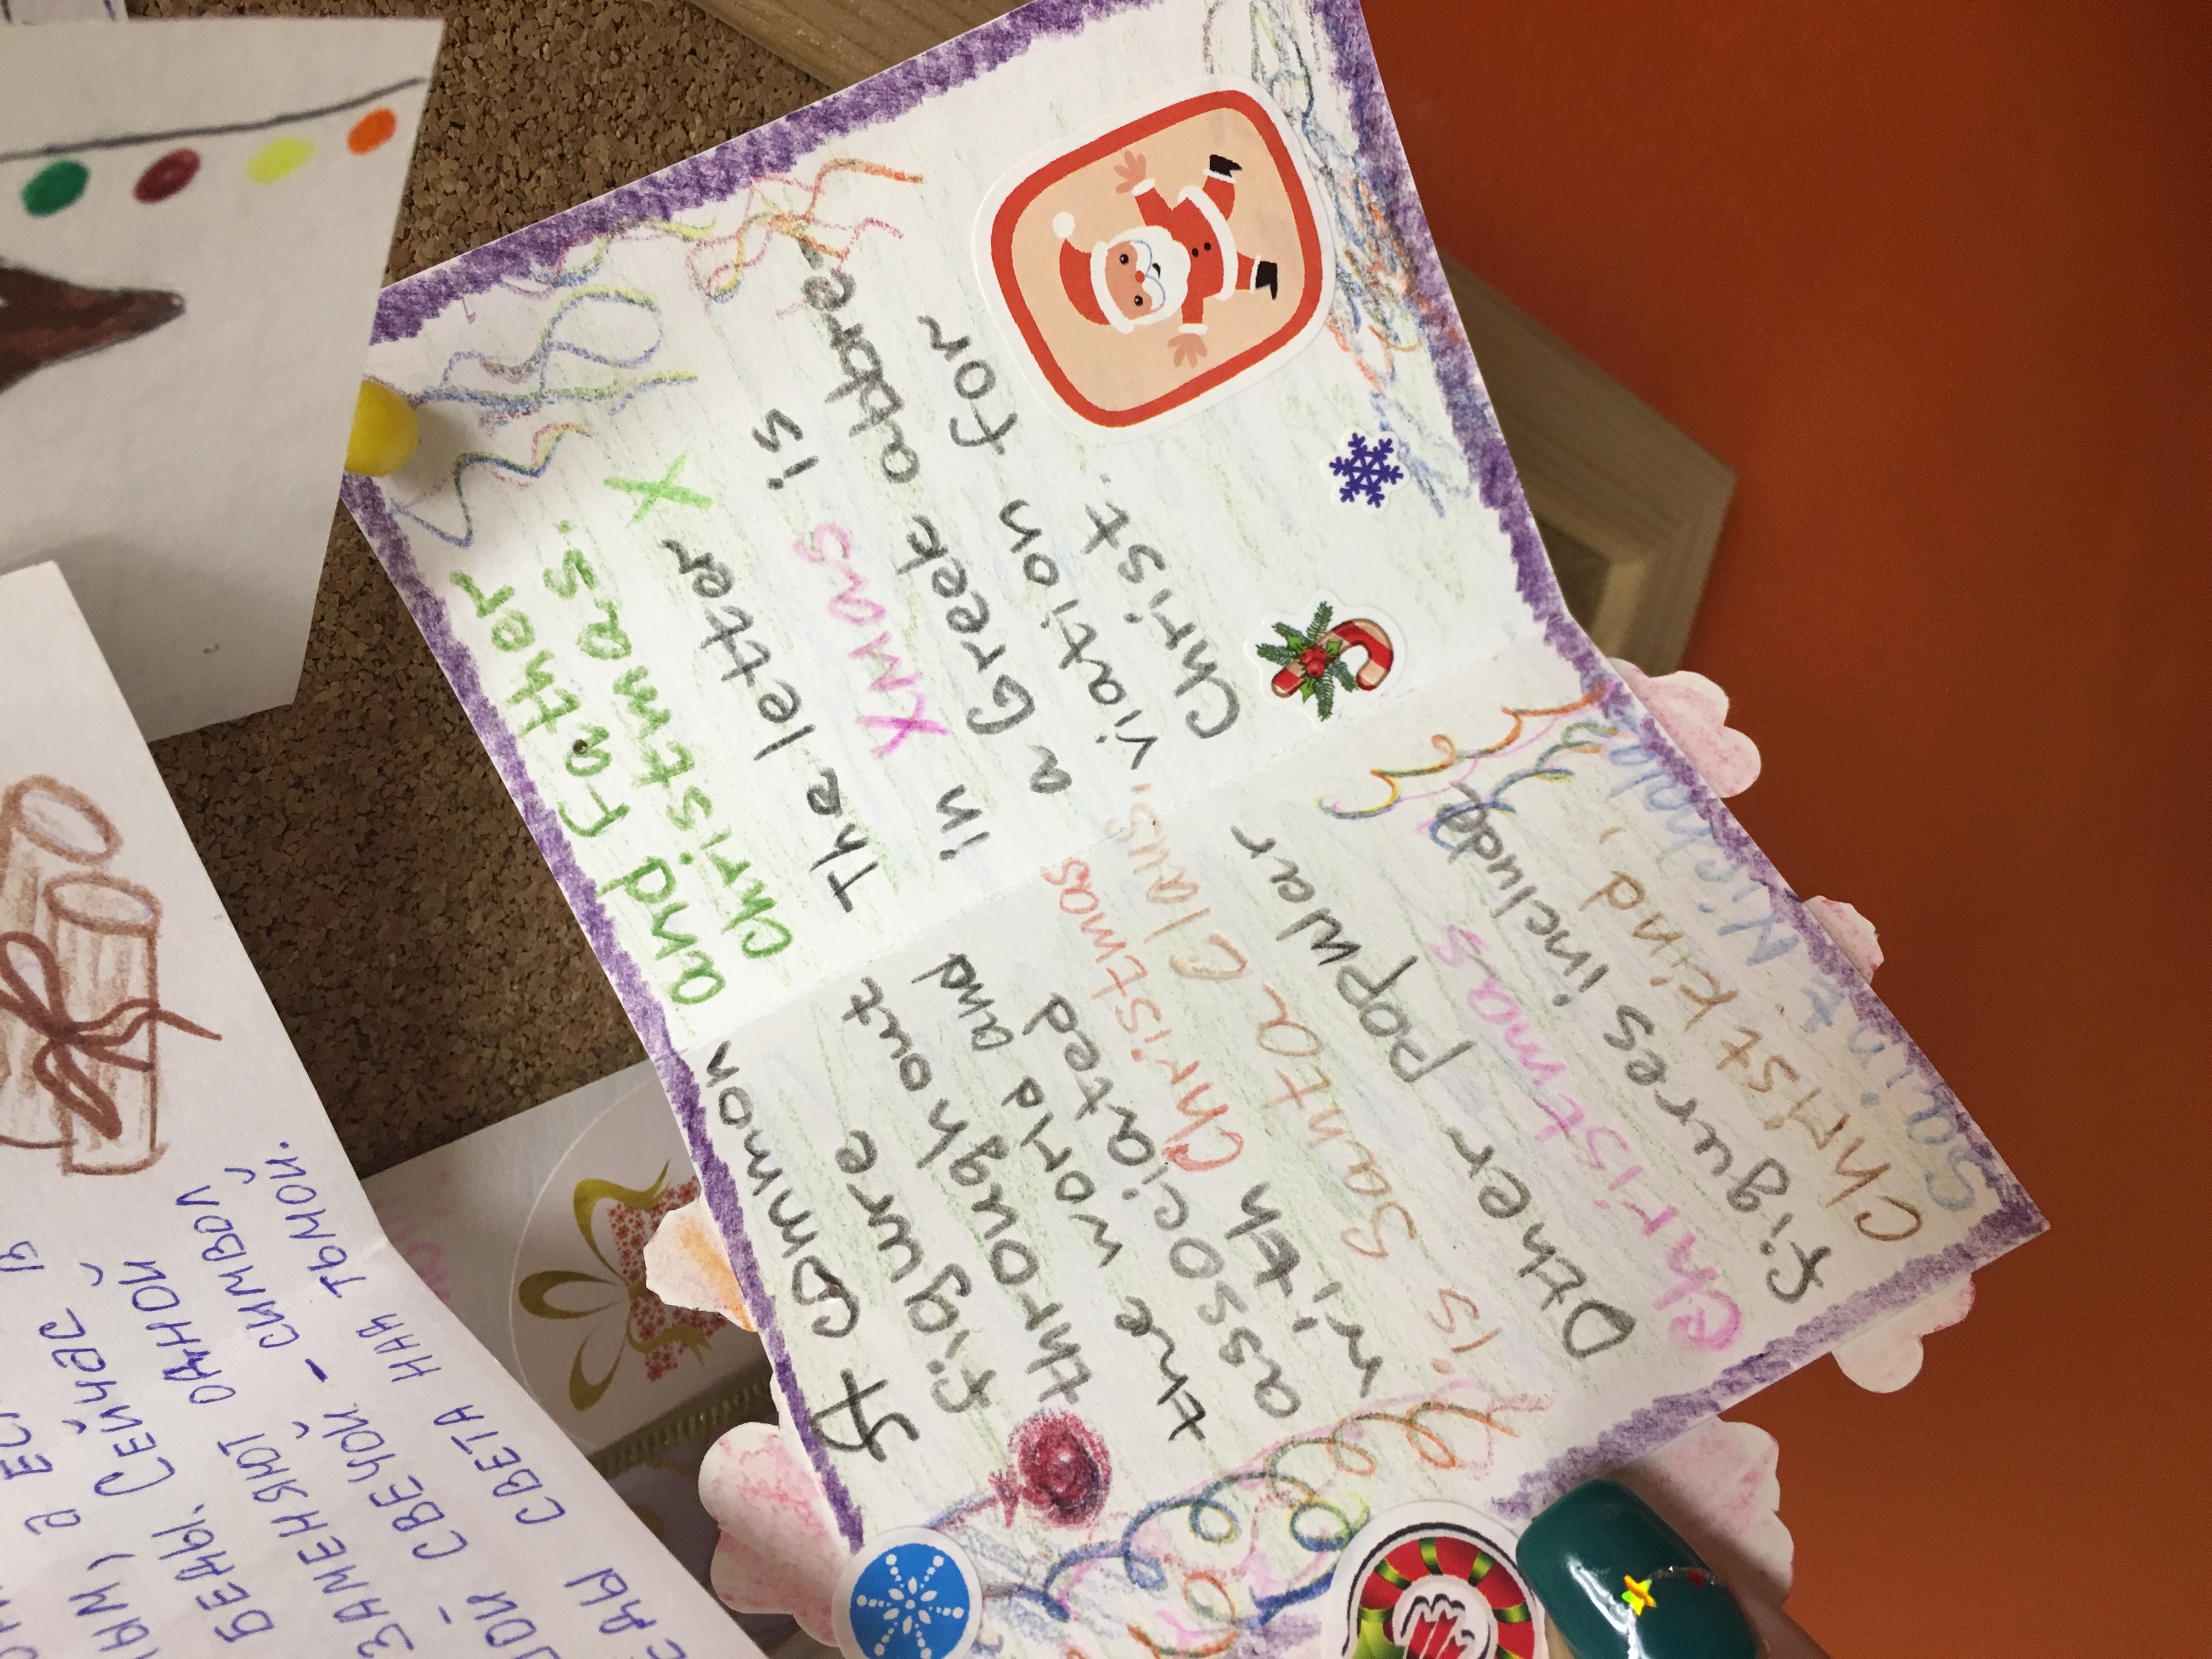 A common
figure
through out
the world and
associated
with Christmas
is Santa Claus.
Other popular
Christmas
figures include
Christ kind,
Saint Nicholas
and Father
Christmas.
The letter X
in Xmas is
a Greek abbre-
viation for
Christ.
беды. Сейчас в
заменяют одной
свечой - символ
света над тьмой.